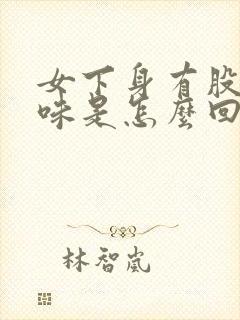 女下身有股
味是怎麼回
林智嵐